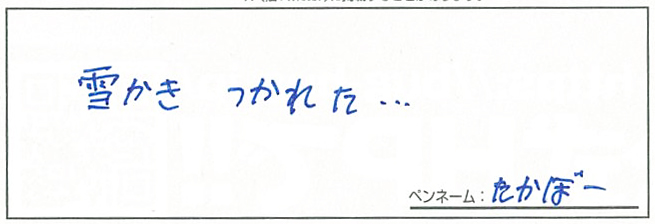 雪かき つかれた…
ペンネーム：たかぼー